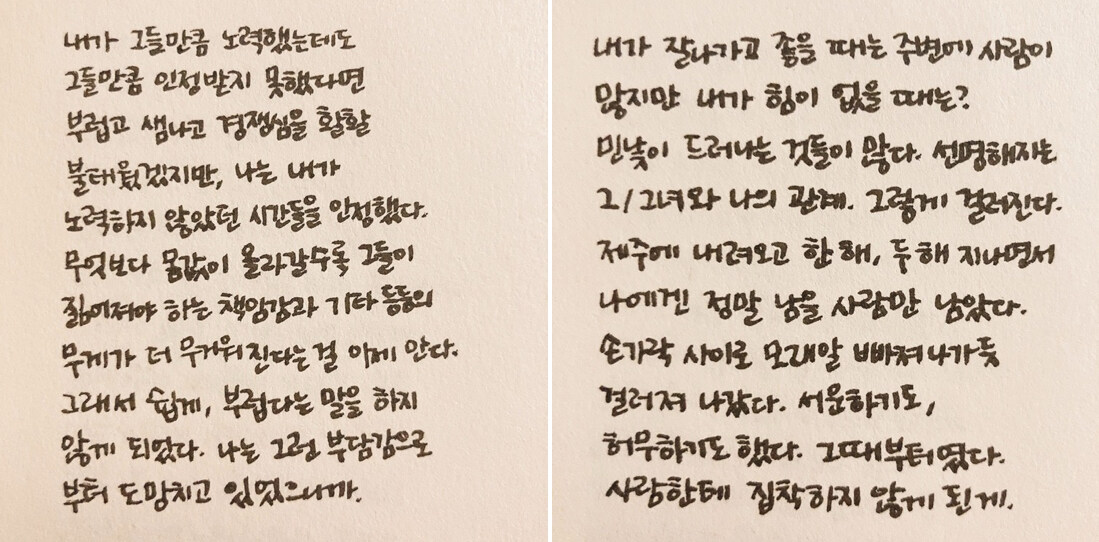 내가 그들만큼 노력했는데도
그들만큼 인정받지 못했다면
부럽고 샘나고 경쟁심을 활활
불태웠겠지만, 나는 내가
노력하지 않았던 시간들을 인정했다.
무엇보다 몸값이 올라갈수록 그들이
짊어져야 하는 책임감과 기타 등등의
무게가 더 무거워진다는 걸 이제 안다.
그래서 쉽게, 부럽다는 말을 하지
않게 되었다. 나는 그런 부담감으로
부터 도망치고 있었으니까.
내가 잘나가고 좋을 때는 주변에 사람이
많지만 내가 힘이 없을 때는?
민낯이 드러나는 것들이 많다. 선명해지는
그/그녀와 나의 관계. 그렇게 걸러진다.
제주에 내려오고 한 해, 두 해 지나면서
나에겐 정말 남을 사람만 남았다.
손가락 사이로 모래알 빠져나가듯
걸러져 나갔다. 서운하기도,
허무하기도 했다. 그때부터였다.
사람한테 집착하지 않게 된 게.